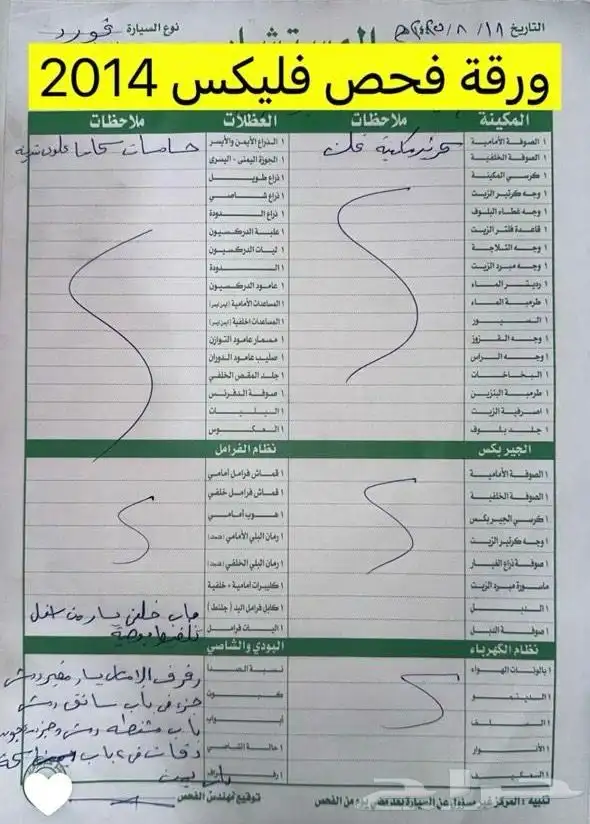 التاريخ ١٨ / ٨ / نوع السيارة فورد
ورقة فحص فليكس 2014
المكينة ملاحظات العظلات ملاحظات
١ الصوفة الأمامية
١ الصوفة الخلفية
١ كرسي المكينة
١ وجه كرتير الزيت
١ وجه غطاء البلوف
١ قاعدة فلتر الزيت
١ وجه الثلاجة
١ وجه مبرد الزيت
١ رديتر الماء
١ طرمبة الماء
١ السيور
١ وجه القزوز
١ وجه الراس
١ البخاخات
١ طرمبة البنزين
١ اصرفية الزيت
١ جلد بلوف
١ الذراع الأيمن والأيسر
١ الجوزة اليمنى - اليسرى
١ ذراع طويل
١ ذراع شاصي
١ ذراع الدودة
١ علبة الدركسيون
١ ليات الدركسيون
١ الدودة
١ عامود الدركسيون
١ المساعدات الأمامية
١ المساعدات الخلفية
١ مسمار عامود التوازن
١ صليب عامود الدوران
١ جلد المقص الخلفي
١ صوفة الدفرنس
١ البليات
١ العكوس
حساسات
الجير بكس
١ الصوفة الأمامية
١ الصوفة الخلفية
١ كرسي الجير بكس
١ وجه كرتير الزيت
١ صوفة ذراع الغيار
ماسورة مبرد الزيت
١ الدبل
١ صوفة الدبل
نظام الفرامل
١ قماش فرامل أمامي
١ قماش فرامل خلفي
١ هوب أمامي
١ رمان البلي الأمامي
١ رمان البلي الخلفي
١ كليبرات أمامية + خلفية
١ كابل فرامل اليد (جلنط)
١ اليات فرامل
باب خلفي يسار من اسفل
نظام الكهرباء
١ بالونات الهواء
١ الدينمو
١ السلف
١ الأنوار
١ المكيف
البودي والشاصي
نسبة الصدأ
كبوت
أبواب
١ حالة الشاصي
١ رفارف
رفرف الامامي يسار مغير ورش
جزء في باب سائق رش
باب شنطة رش
دقات في ٢ باب
تنبيه : المركز غير مسؤول عن السيارة بعد مضي يوم من الفحص
توقيع مهندس الفحص
حراج